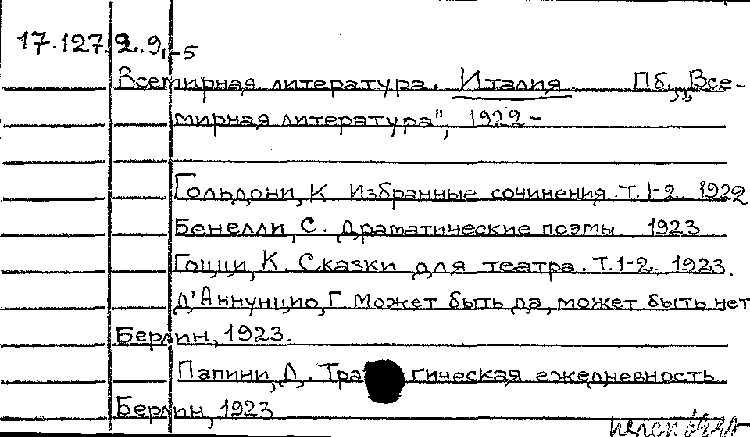 17.127.2.9.-5
Всемирная литература. Италия Пб., „Все-
мирная литература", 1922-
Гольдони, К. Избранные сочинения. Т.1-2. 1922
Бенелли, С. Драматические поэмы 1923
Гоцци, К. Сказки для театра. Т.1-2. 1923.
Д'Аннунцио, Г. Может быть да, может быть нет
Берлин, 1923.
Папини, Д. Тра гическая ежедневность
Берлин, 1923